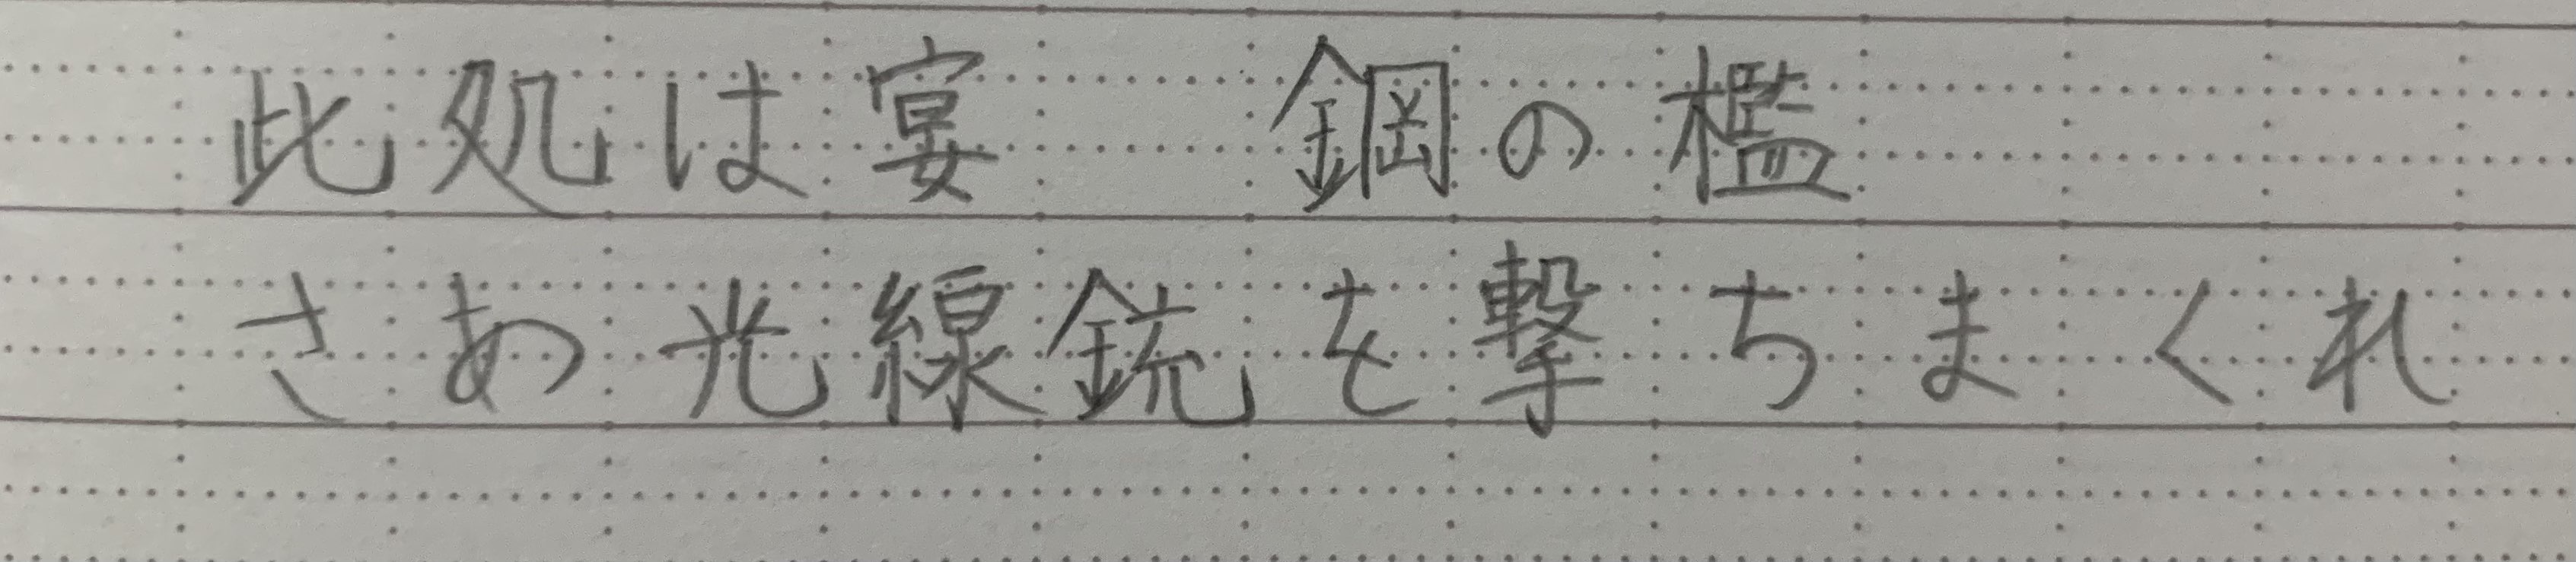 此処は宴　鋼の檻
さあ光線銃を撃ちまくれ